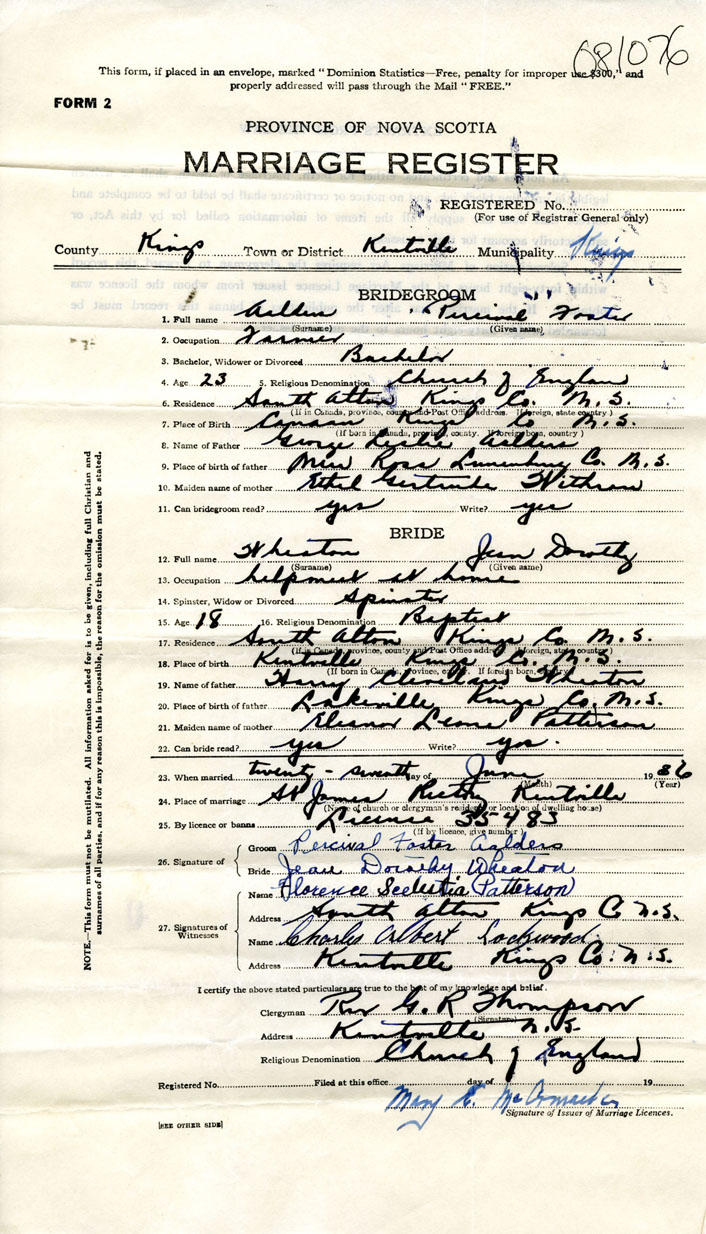 081076
This form, if placed in an envelope, marked "Dominion Statistics—Free, penalty for improper use $300," and
properly addressed will pass through the Mail "FREE."
FORM 2
PROVINCE OF NOVA SCOTIA
MARRIAGE REGISTER
REGISTERED No.
(For use of Registrar General only)
County Kings Town or District Kentville Municipality Kings
BRIDEGROOM
1. Full name Aalders Percival Foster
(Surname) (Given name)
2. Occupation Farmer
3. Bachelor, Widower or Divorced Bachelor
4. Age 23 5. Religious Denomination Church of England
6. Residence South Alton Kings Co. N.S.
(If in Canada, province, county and Post Office address. If foreign, state country)
7. Place of Birth Canaan Kings Co N.S.
(If born in Canada, province, county. If foreign born, country)
8. Name of Father George Leslie Aalders
9. Place of birth of father New Ross Lunenburg Co. N.S.
10. Maiden name of mother Ethel Gertrude Withrow
11. Can bridegroom read? yes Write? yes
BRIDE
12. Full name Wheaton Jean Dorothy
(Surname) (Given name)
13. Occupation helpmeet at home
14. Spinster, Widow or Divorced Spinster
15. Age 18 16. Religious Denomination Baptist
17. Residence South Alton Kings Co. N.S.
(If in Canada, province, county and Post Office address. If foreign, state country)
18. Place of birth Kentville Kings Co. N.S.
(If born in Canada, province, county. If foreign born, country)
19. Name of father Harry Cleveland Wheaton
20. Place of birth of father Lakeville Kings Co. N.S.
21. Maiden name of mother Eleanor Leona Patterson
22. Can bride read? yes Write? yes.
23. When married twenty-seventh day of June 1936
(Month) (Year)
24. Place of marriage St James Kentville
(Name of church or clergyman's residence or location of dwelling house)
25. By licence or banns Licence 35483
(If by licence, give number)
26. Signature of
Groom Percival Foster Aalders
Bride Jean Dorothy Wheaton
27. Signatures of Witnesses
Name Florence Patterson
Address South Alton Kings Co N.S.
Name Charles Albert Lockwood
Address Kentville Kings Co. N.S.
I certify the above stated particulars are true to the best of my knowledge and belief.
Clergyman Rev G. R Thompson
(Signature)
Address Kentville N.S.
Religious Denomination Church of England
Registered No. Filed at this office day of 19
Mary
Signature of Issuer of Marriage Licences.
[SEE OTHER SIDE]
NOTE.—This form must not be mutilated. All information asked for is to be given, including full Christian and
surnames of all parties, and if for any reason this is impossible, the reason for the omission must be stated.